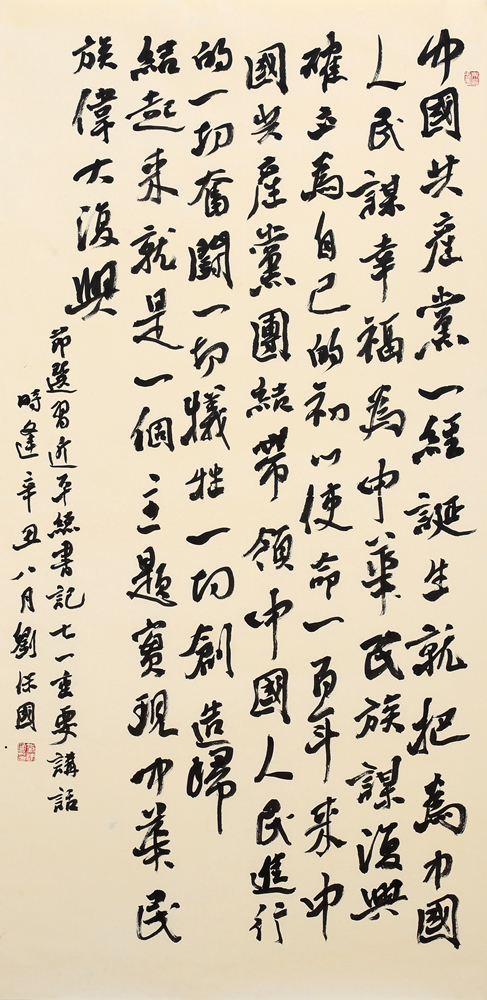 中國共產黨一經誕生就把為中國
人民謀幸福為中華民族謀復興
確立為自己的初心使命一百年來中
國共產黨團結帶領中國人民進行
的一切奮鬪一切犧牲一切創造歸
結起來就是一個主題實現中華民
族偉大復興
節選習近平總書記七一重要講話
時逢辛丑八月劉保國